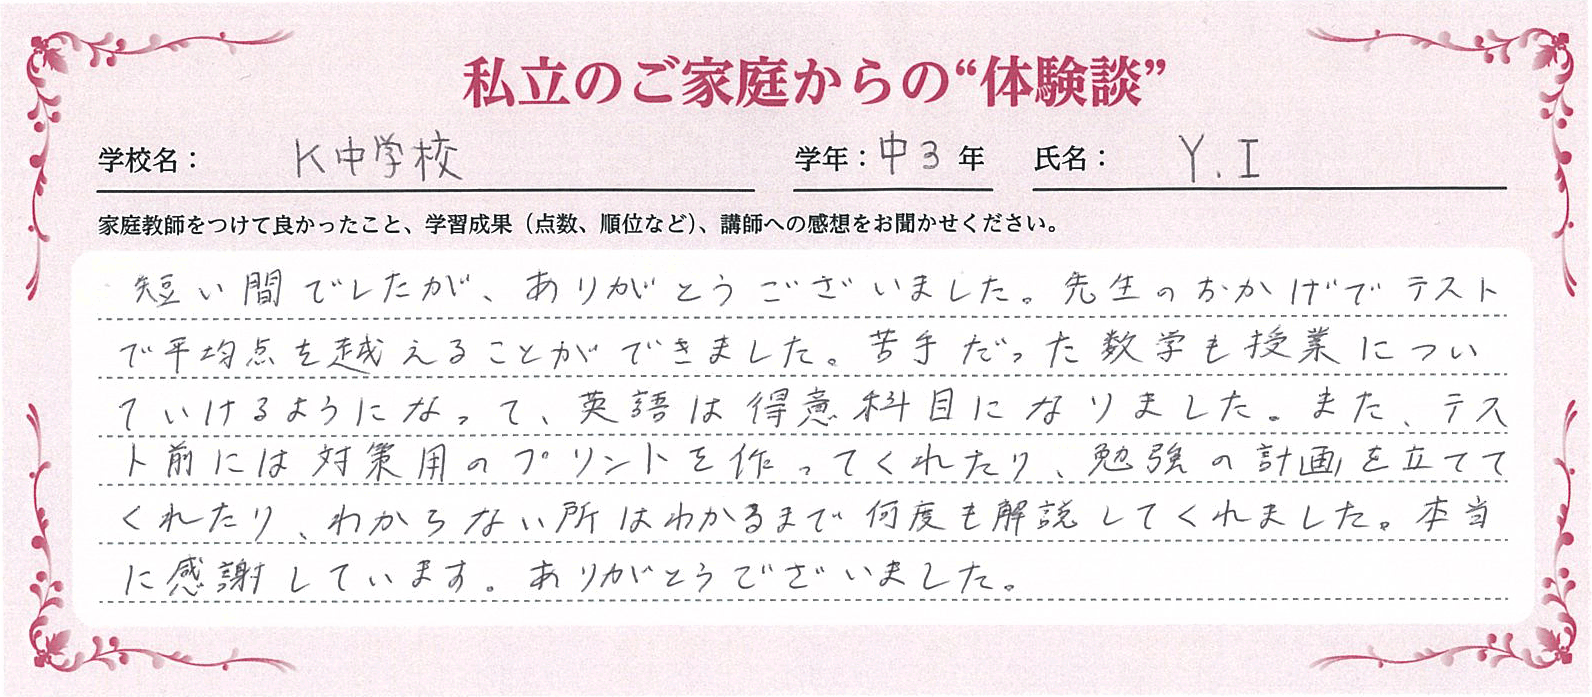 私立のご家庭からの“体験談”
学校名： K中学校 学年：中3年 氏名： Y.I
家庭教師をつけて良かったこと、学習成果（点数、順位など）、講師への感想をお聞かせください。
短い間でしたが、ありがとうございました。先生のおかげでテスト
で平均点を越えることができました。苦手だった数学も授業につい
ていけるようになって、英語は得意科目になりました。また、テス
ト前には対策用のプリントを作ってくれたり、勉強の計画を立てて
くれたり、わからない所はわかるまで何度も解説してくれました。本当
に感謝しています。ありがとうございました。